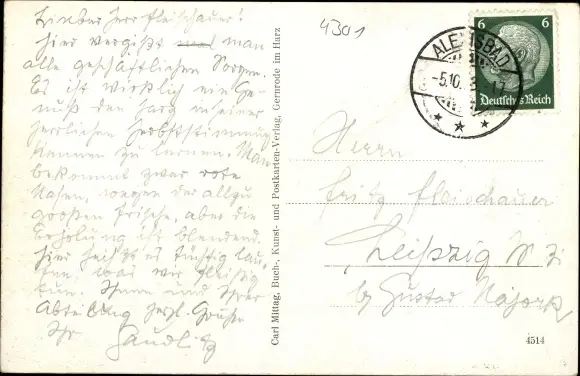 Lieber Herr Fleischauer!
Hier vergißt man
alle geschäftlichen Sorgen.
Es ist wirklich ein Ge-
nuß den Harz in seiner
herrlichen Herbststimmung
kennen zu lernen. Man
bekommt zwar rote
Nasen, wegen der allzu
großen Frische, aber die
Erholung ist blendend.
Hier heißt es tüchtig lau-
fen, was wir fleißig
tun. Ihnen und Ihrer
Abteilung herzl. Grüße
Ihr Gaudlitz
Carl Mittag, Buch-, Kunst- und Postkarten-Verlag, Gernrode im Harz
4301
ALEXISBAD
-5.10.
6 6
Deutsches Reich
Herrn
Fritz Fleischauer
Leipzig N
by Gustav Najork
4514